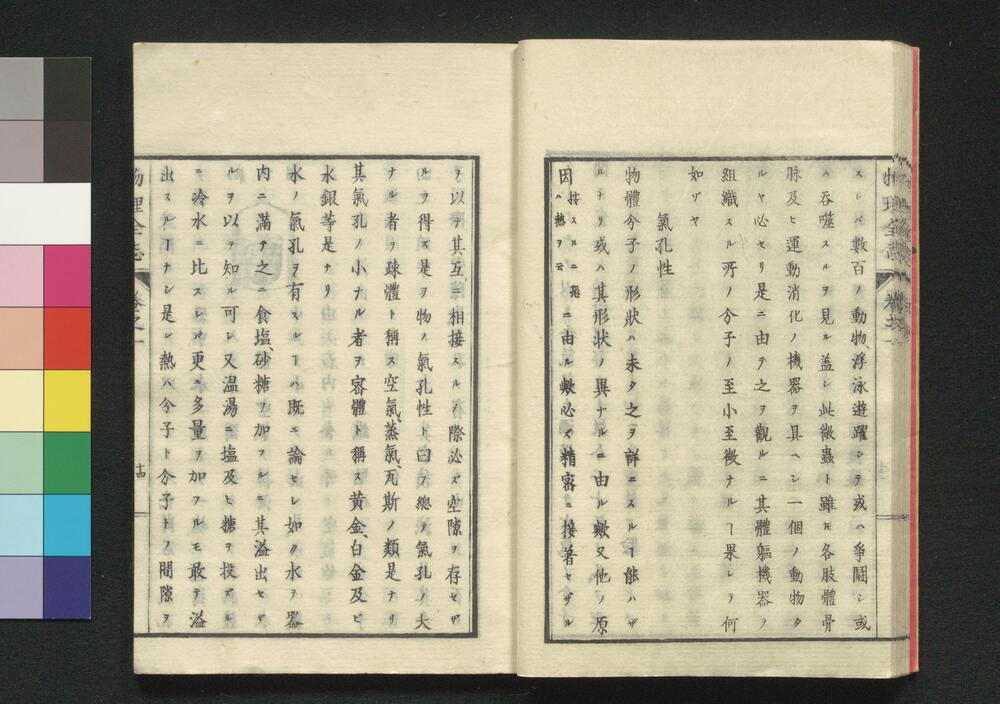 スレバ數百ノ動物、浮泳遊躍シテ或ハ爭鬪シ或
ハ吞噬スルヲ見ル蓋シ此微蟲ト雖𪜈各肢體骨
脉及ヒ運動消化ノ機器ヲ具ヘシ一個ノ動物タ
ルヤ必セリ是ニ由テ之ヲ觀ルニ其體軀機器ヲ
組織スル所ノ分子ノ至小至微ナルヿ果シテ何
如ゾヤ
氣孔性
物體分子ノ形狀ハ未タ之ヲ詳ニスルヿ能ハザ
ルナリ或ハ其形狀ノ異ナルニ由ル歟又他ノ原
因 按スルニ恐ハ熱ヲ云 ニ由ル歟必ズ精密ニ接著セザル
ヲ以テ其互ニ相接スルノ際必ズ空隙ヲ存セザ
ルヲ得ズ是ヲ物ノ氣孔性ト曰フ總テ氣孔ノ大
ナル者ヲ疎體ト稱ス空氣、蒸氣、瓦斯ノ類是ナリ
其氣孔ノ小ナル者ヲ密體ト稱ス黄金、白金及ビ
水銀等是ナリ
水ノ氣孔ヲ有スルヿハ既ニ論セシ如ク水ヲ器
内ニ滿テ之ニ食塩、砂糖ヲ加フルニ其溢出セザ
ルヲ以テ知ル可シ又温湯ニ塩及ヒ糖ヲ投ズル
ニ冷水ニ比スレバ更ニ多量ヲ加フルモ敢テ溢
出スルヿナシ是レ熱ハ分子ト分子トノ間隙ヲ
物理全志 卷之一 十四